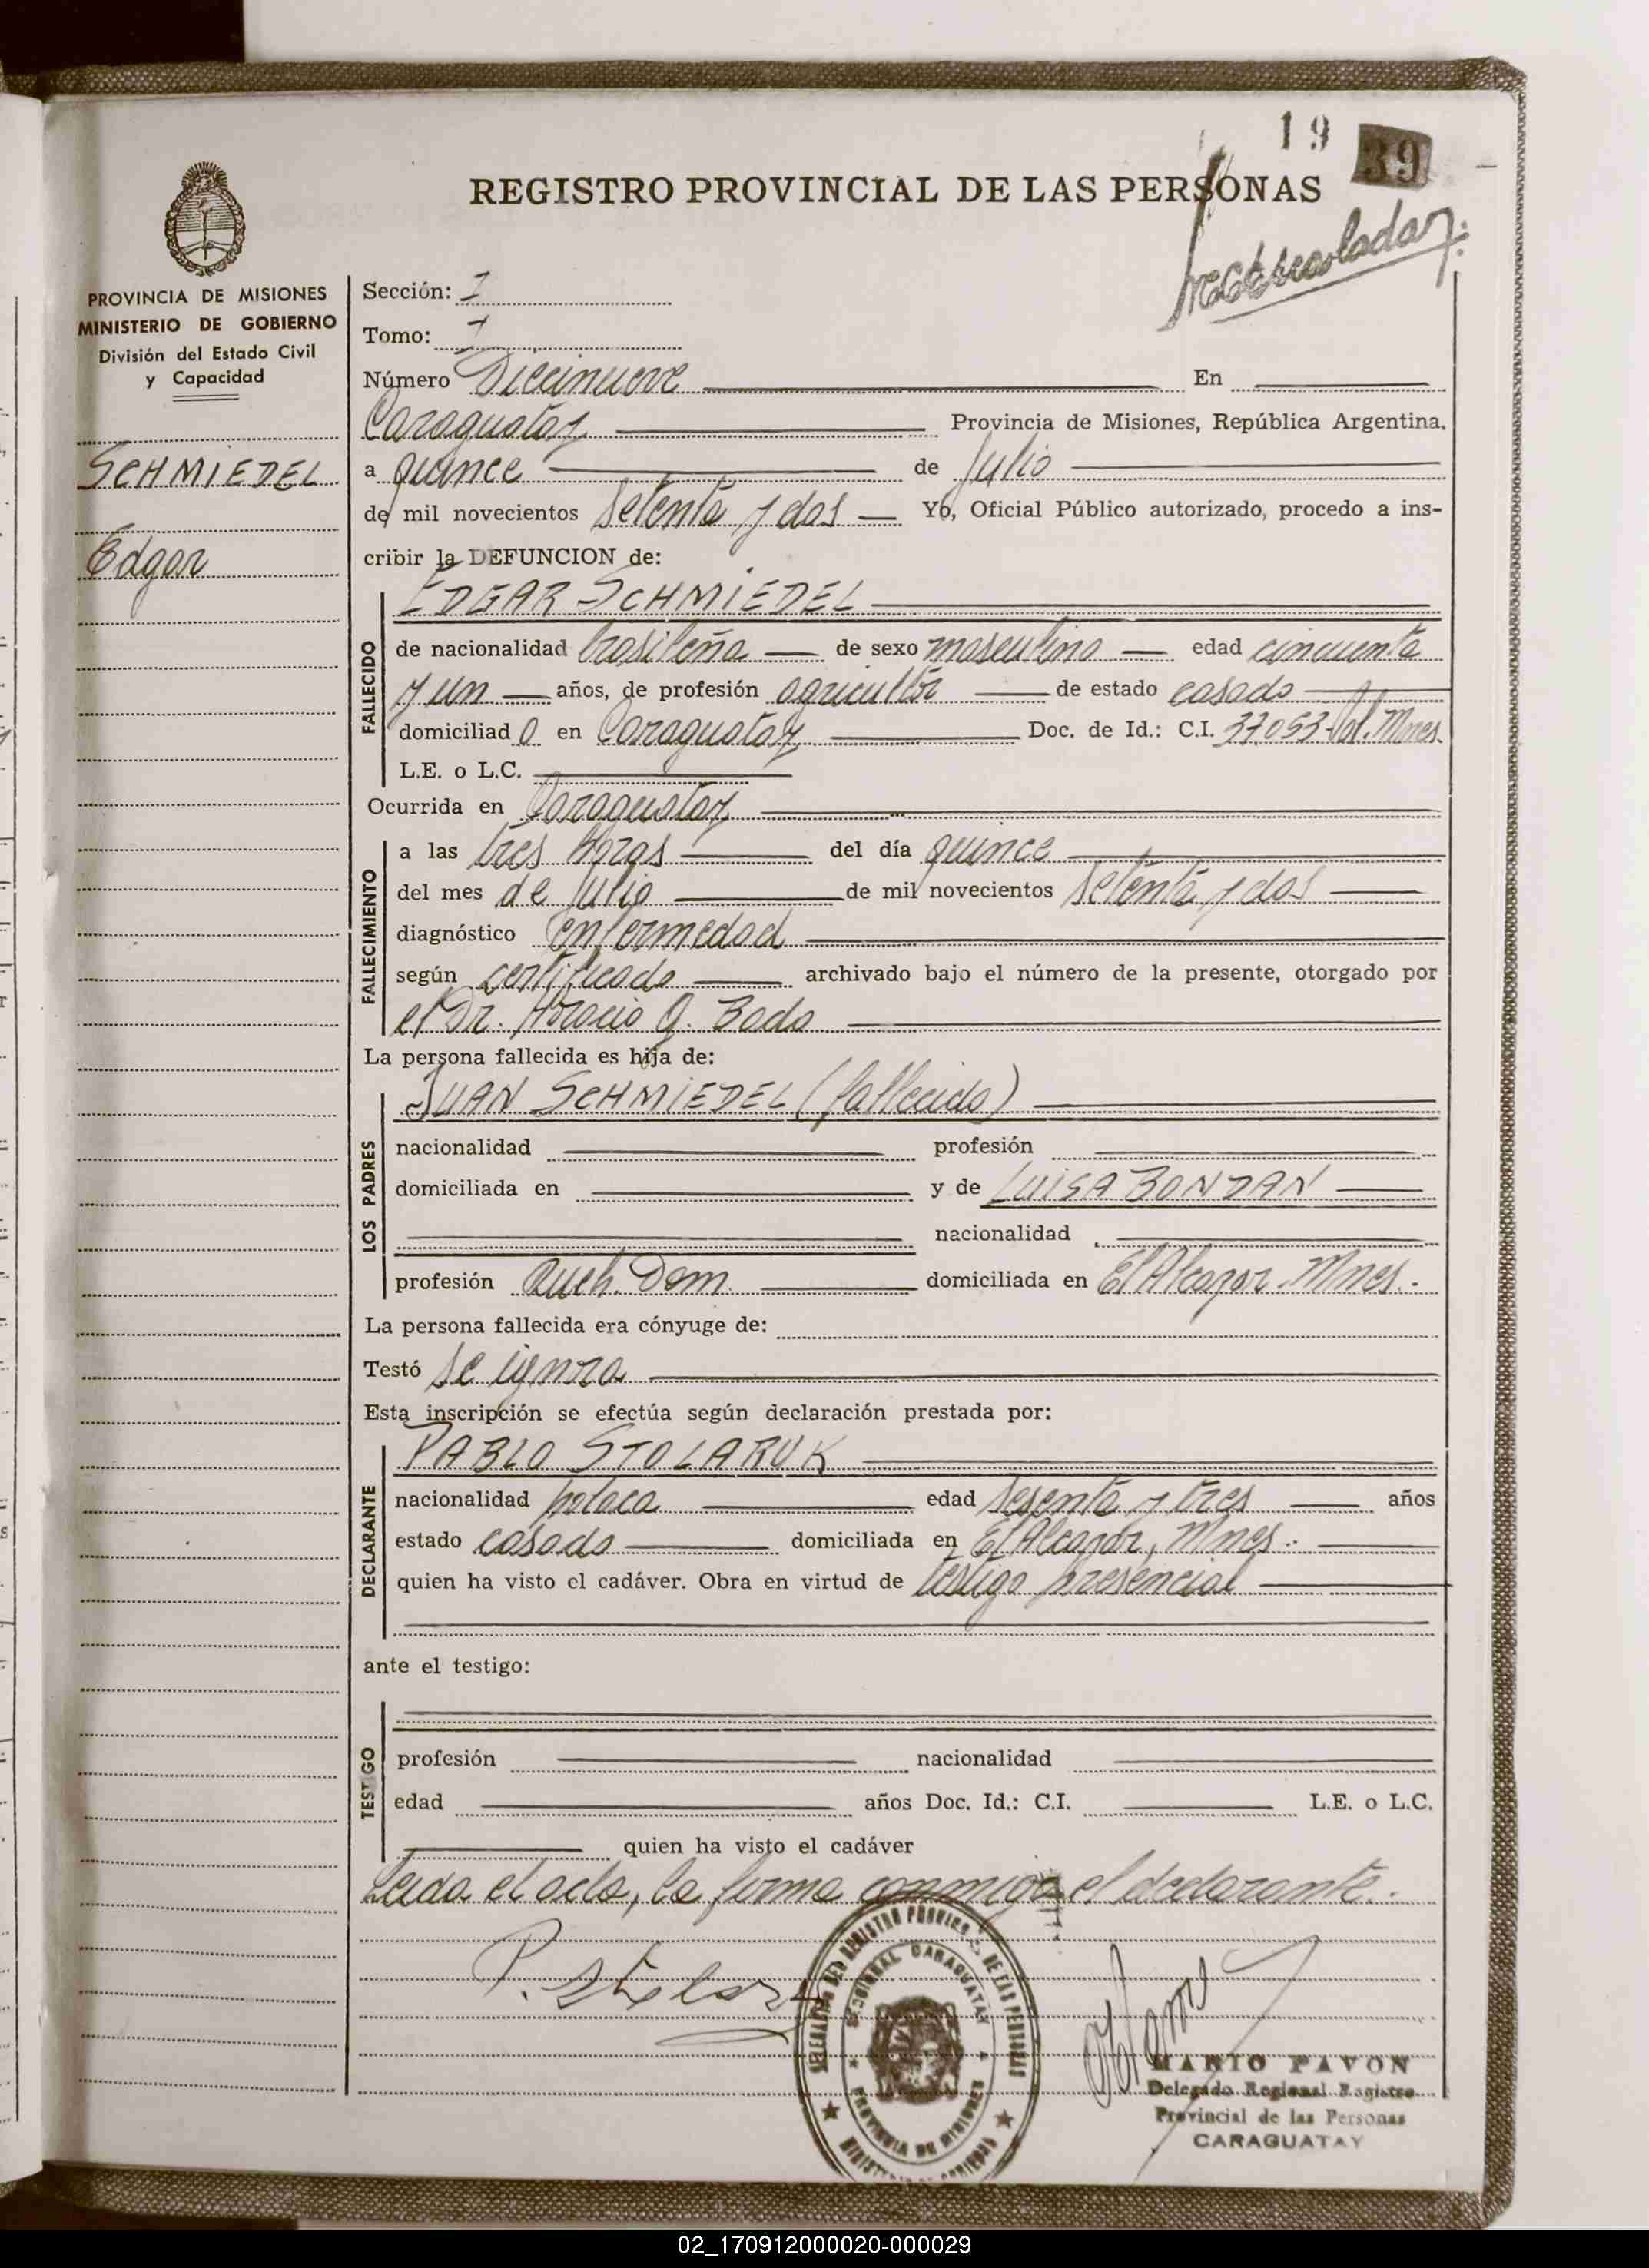 19 39
REGISTRO PROVINCIAL DE LAS PERSONAS
PROVINCIA DE MISIONES
MINISTERIO DE GOBIERNO
División del Estado Civil
y Capacidad
SCHMIEDEL
Edgar
Sección: I
Tomo: I
Número Diecinueve En
Caraguatay Provincia de Misiones, República Argentina,
a quince de Julio
de mil novecientos setenta y dos Yo, Oficial Público autorizado, procedo a ins-
cribir la DEFUNCION de:
EDGAR SCHMIEDEL
FALLECIDO
de nacionalidad brasileña de sexo masculino edad cincuenta
y un años, de profesión agricultor de estado casado
domiciliad o en Caraguatay Doc. de Id.: C.I. 37.053-Pol. Mnes
L.E. o L.C.
Ocurrida en Caraguatay
FALLECIMIENTO
a las tres horas del día quince
del mes de julio de mil novecientos setenta y dos
diagnóstico enfermedad
según certificado archivado bajo el número de la presente, otorgado por
el Dr. Horacio G. Bado
La persona fallecida es hija de:
JUAN SCHMIEDEL (fallecido)
LOS PADRES
nacionalidad profesión
domiciliada en y de LUISA BONDAN
nacionalidad
profesión Queh. Dom. domiciliada en El Alcazar. Mnes.-
La persona fallecida era cónyuge de:
Testó se ignora
Esta inscripción se efectúa según declaración prestada por:
PABLO STOLARUK
DECLARANTE
nacionalidad polaca edad sesenta y tres años
estado casado domiciliada en El Alcazar, Mnes.-
quien ha visto el cadáver. Obra en virtud de testigo presencial
ante el testigo:
TESTIGO
profesión nacionalidad
edad años Doc. Id.: C.I. L.E. o L.C.
quien ha visto el cadáver
Leida el acta, la firma conmigo el declarante.-
SECCIONAL CARAGUATAY
PROVINCIA DE MISIONES
MARIO PAVON
Delegado Regional Registro
Provincial de las Personas
CARAGUATAY
02_170912000020-000029